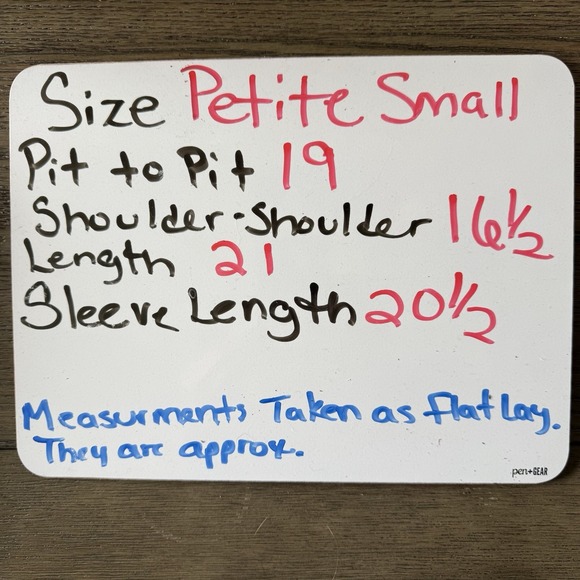 Size Petite Small
Pit to Pit 19
Shoulder-Shoulder 16 1/2
Length 21
Sleeve Length 20 1/2
Measurments Taken as flat lay.
They are approx.
pen+GEAR